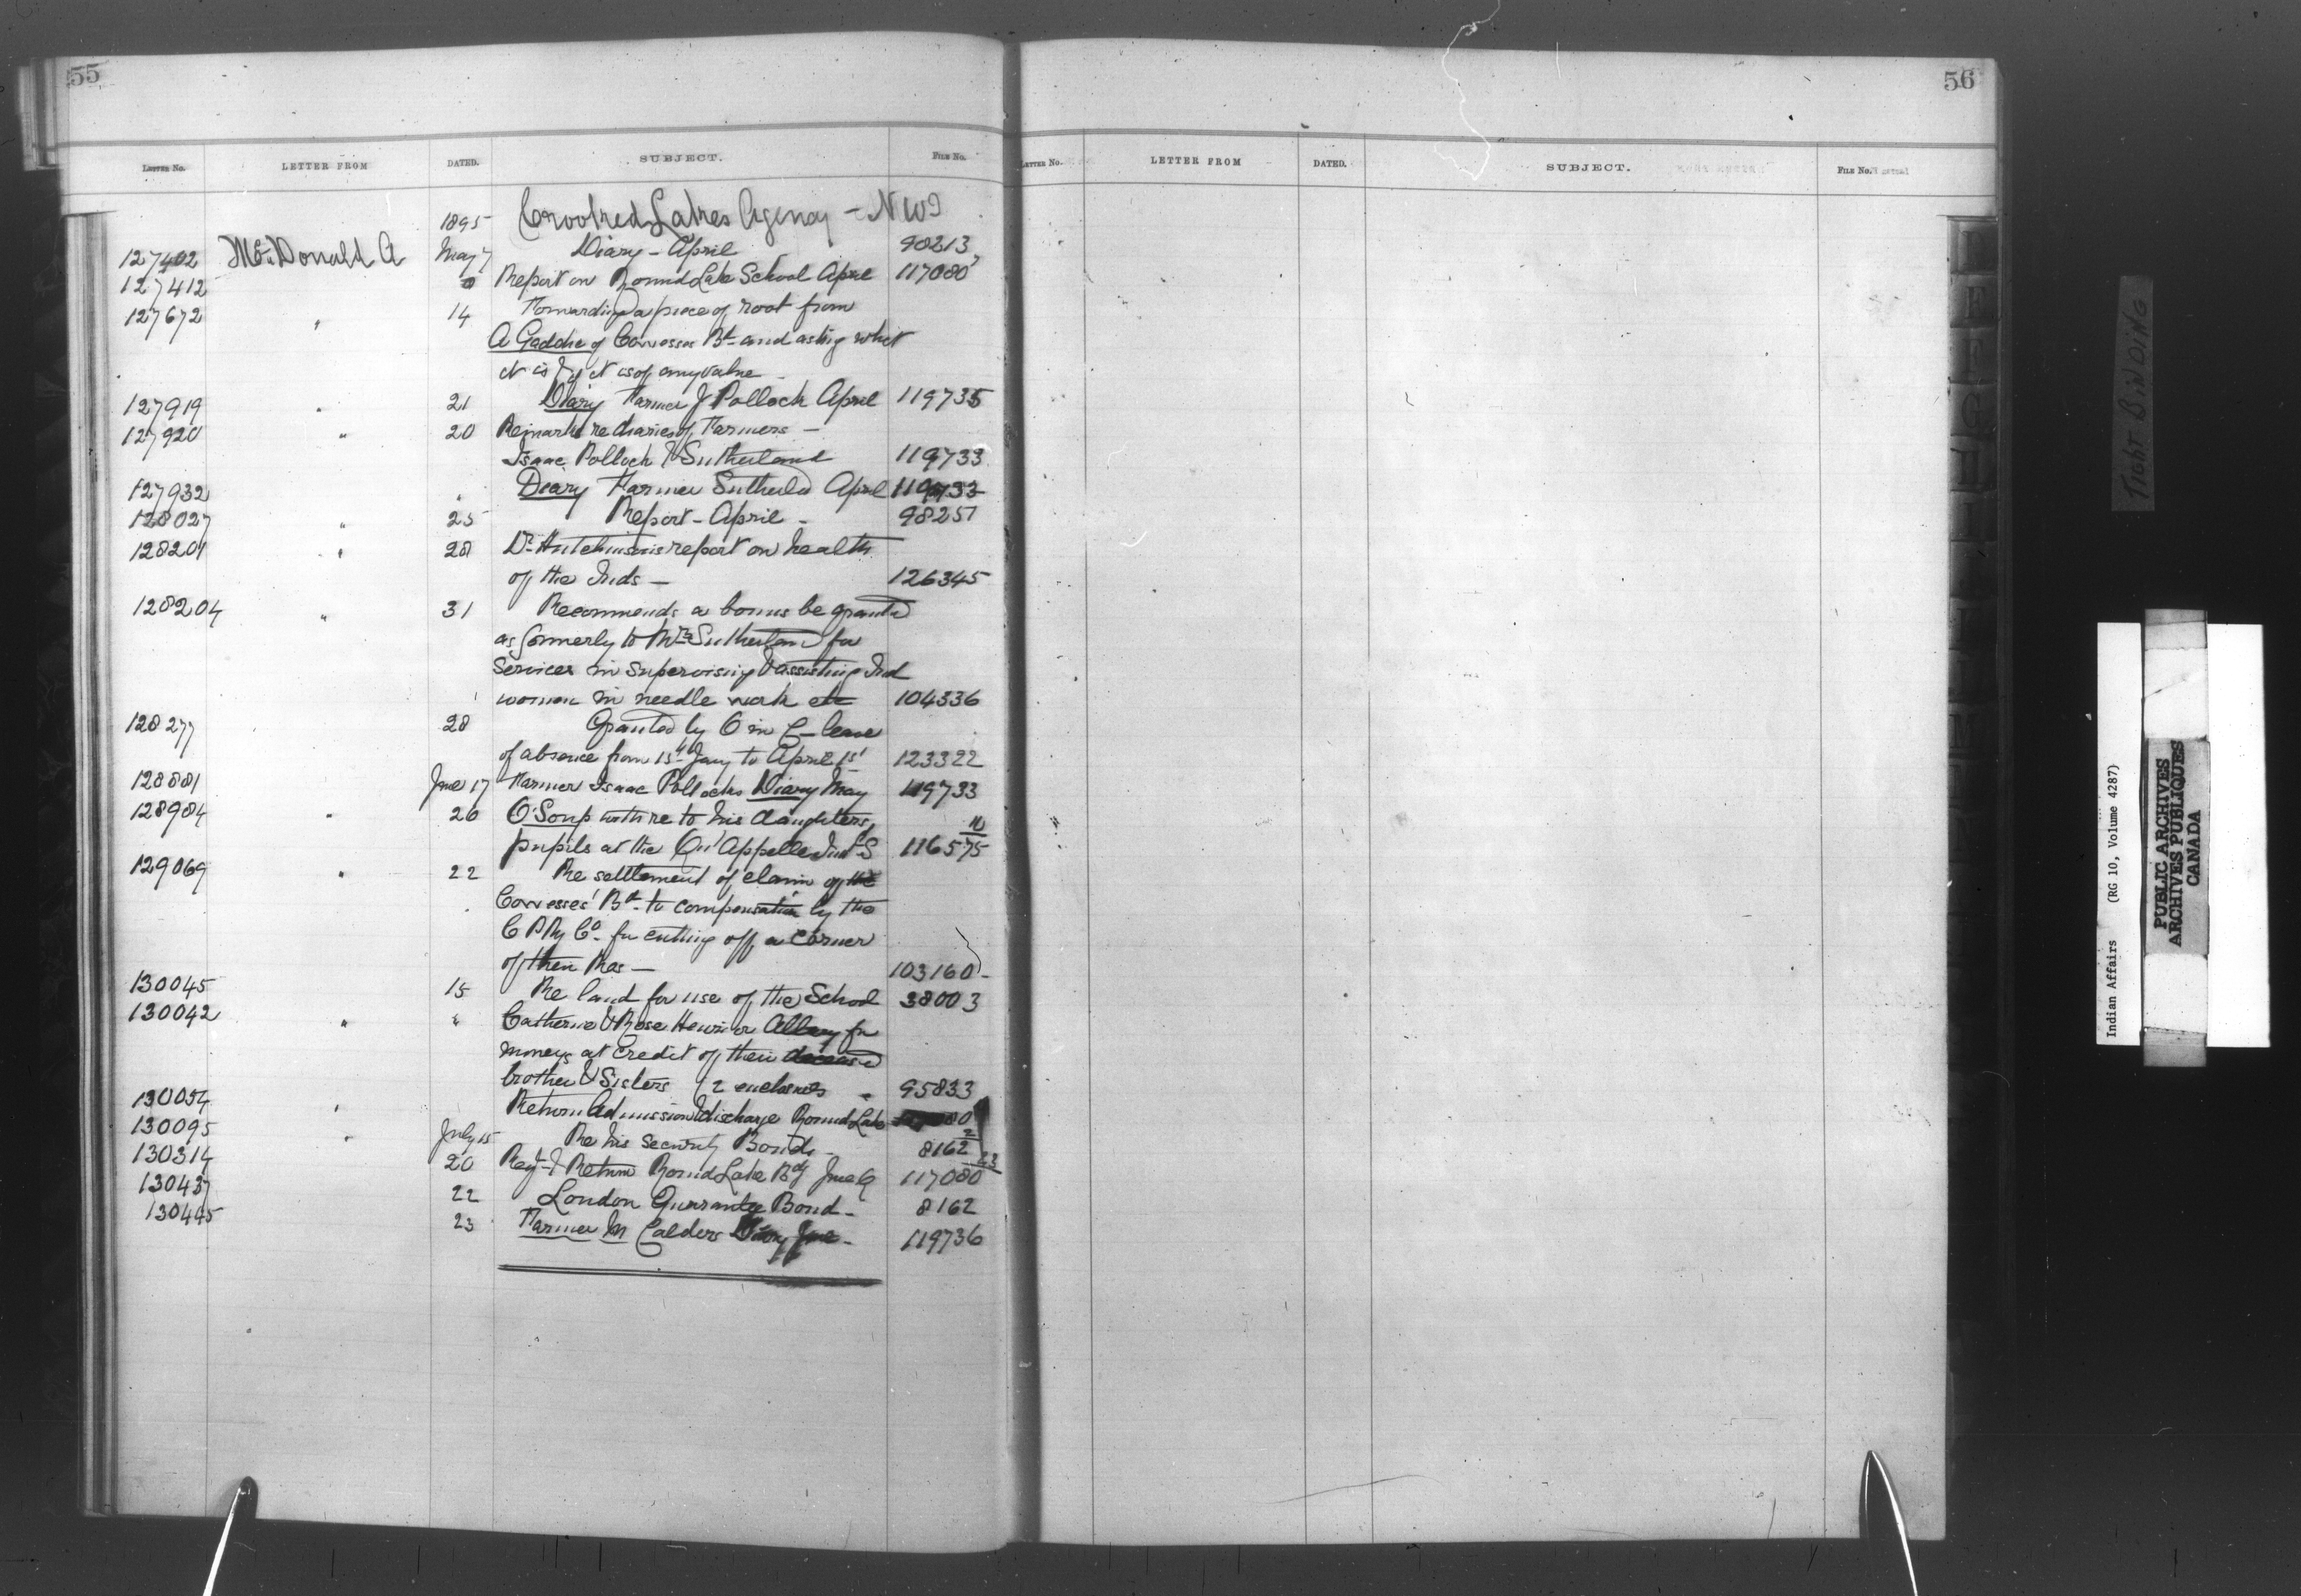 55
LETTER NO. LETTER FROM DATED. SUBJECT. FILE NO.
1895 Crooked Lakes Agency - NWT
127402 McDonald A May 7 Diary - April 90213
127412 8 Report on Round Lake School April 117080
127672 " 14 Forwarding a piece of root from
A Gaddie of Cowesses Bd and asking what
it is & if it is of any value -
127919 " 21 Diary Farmer J Pollock April 119735
127920 " 20 Remarks re diaries of Farmers -
Isaac Pollock & Sutherland 119733
127932 " Diary Farmer Sutherld April
128027 " 25 Report - April - 98251
128201 " 28 Dr Hutchinsons report on health
of the Inds - 126345
128204 " 31 Recommends a bonus be granted
as formerly to Mrs Sutherland for
Services in supervising & assisting Ind
women in needle work etc 104336
128277 28 Granted by O in C - leave
of absence from 15th Jany to April 1st 123322
128881 June 17 Farmer Isaac Pollocks Diary May 119733
128984 " 20 O'Soup with re to his daughters,
pupils at the Qu'Appelle Indl S 116575 10
129069 " 22 Re settlement of claim of the
Cowesses' Bd to compensation by the
C P Ry Co. for cutting off a corner
of their Res - 103160 -
130045 15 Re land for use of the School 38003
130042 " " Catherine & Rose Henri or Albany for
moneys at credit of their deceased
brother & Sisters (2 enclosures 95833
130054 " Return Admission & discharge Round Lake 80
130095 " July 15 Re his Security Bond - 8162 2
130314 20 Regt & Return Round Lake Bdg June Q 117080 23
130437 22 London Guarantee Bond - 8162
130445 23 Farmer M Calders Diary June - 119736
56
LETTER NO. LETTER FROM DATED. SUBJECT. FILE NO.
TIGHT BINDING
Indian Affairs (RG 10, Volume 4287)
PUBLIC ARCHIVES
ARCHIVES PUBLIQUES
CANADA